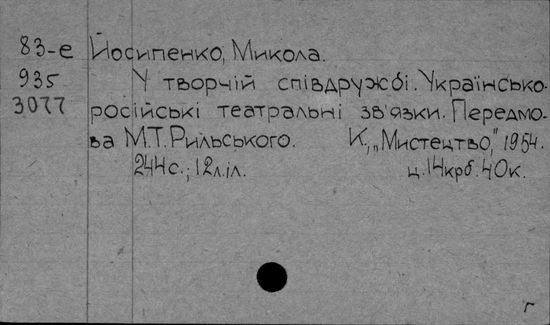 83-е Йосипенко, Микола.
935 У творчій співдружбі. Українсько-
3077 російські театральні зв'язки. Передмо-
ва М.Т. Рильського. К., „Мистецтво," 1954.
244с.; 12л.іл. ц. 14крб. 40к.
г